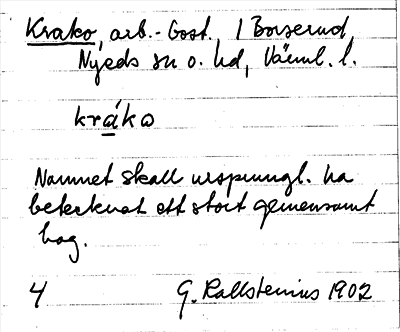 Krako, arb.-bost. / Borserud,
Nyeds sn o. hd, Värml. l.
kráko
Namnet skall ursprungl. ha
betecknat ett stort gemensamt
hag.
4 G. Kallstenius 1902